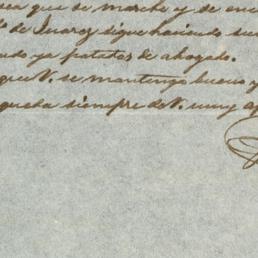 sea que se marche y de en
de Juarez sigue haciendo su
ya patadas de ahogado.
que V. se mantenga bueno y
queda siempre de V. muy a